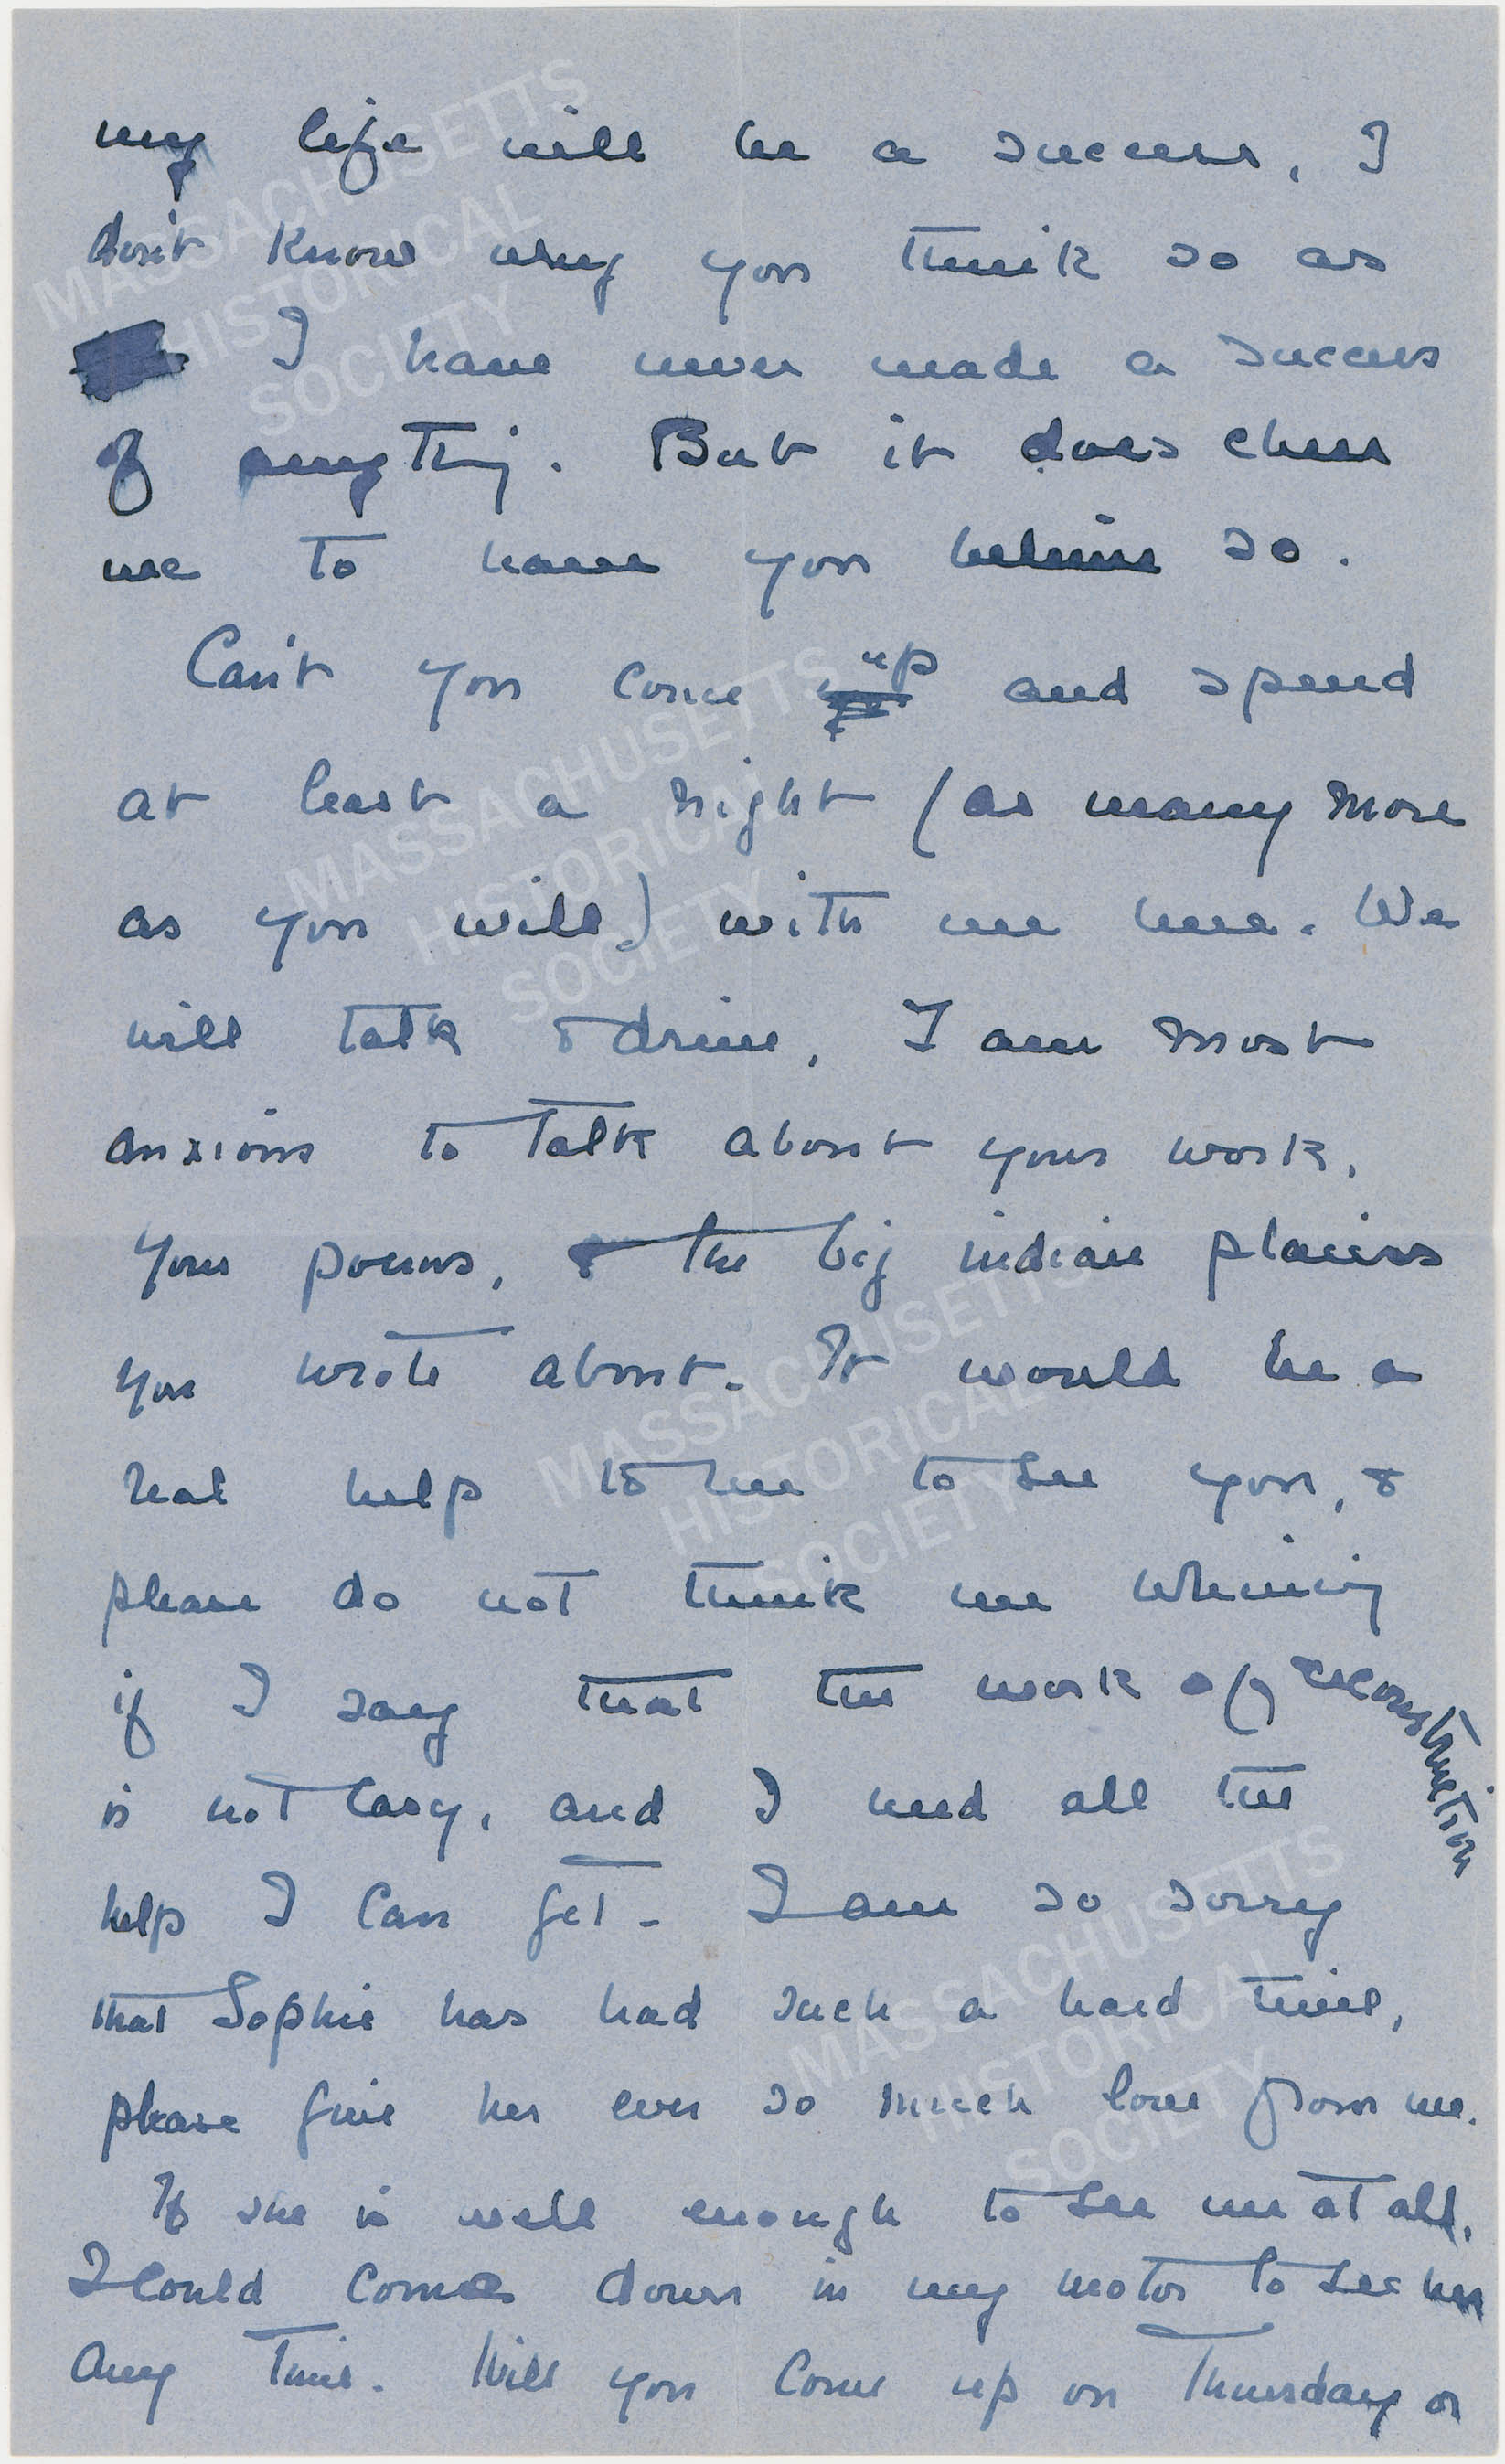 my life will be a success, I
don't know why you think so as
I have never made a success
of anything. But it does cheer
me to have you believe so.
Can't you come up and spend
at least a night (as many more
as you will) with me here. We
will talk & drive, I am most
anxious to talk about your work,
your poems, & the big indian plains
you wrote about. It would be a
real help to me to see you, &
please do not think me whining
if I say that the work of reconstruction
is not easy, and I need all the
help I can get - I am so sorry
that Sophie has had such a hard time,
please give her ever so much love from me.
If she is well enough to see me at all,
I could come down in my motor to see her
any time. Will you come up on Thursday or
MASSACHUSETTS
HISTORICAL
SOCIETY
MASSACHUSETTS
HISTORICAL
SOCIETY
MASSACHUSETTS
HISTORICAL
SOCIETY
MASSACHUSETTS
HISTORICAL
SOCIETY